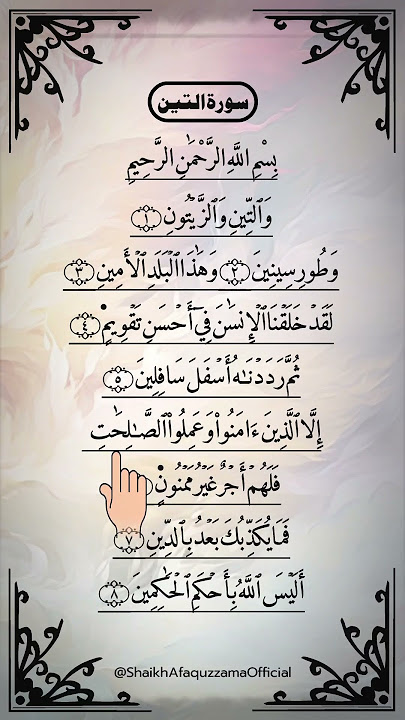 سورة التين
بِسْمِ اللَّهِ الرَّحْمَٰنِ الرَّحِيمِ
وَٱلتِّينِ وَٱلزَّيْتُونِ ١
وَطُورِ سِينِينَ ٢ وَهَٰذَا ٱلْبَلَدِ ٱلْأَمِينِ ٣
لَقَدْ خَلَقْنَا ٱلْإِنسَٰنَ فِىٓ أَحْسَنِ تَقْوِيمٍ ٤
ثُمَّ رَدَدْنَٰهُ أَسْفَلَ سَافِلِينَ ٥
إِلَّا ٱلَّذِينَ ءَامَنُوا۟ وَعَمِلُوا۟ ٱلصَّٰلِحَٰتِ
فَلَهُمْ أَجْرٌ غَيْرُ مَمْنُونٍ
فَمَا يُكَذِّبُكَ بَعْدُ بِٱلدِّينِ ٧
أَلَيْسَ ٱللَّهُ بِأَحْكَمِ ٱلْحَٰكِمِينَ ٨
@ShaikhAfaquzzamaOfficial